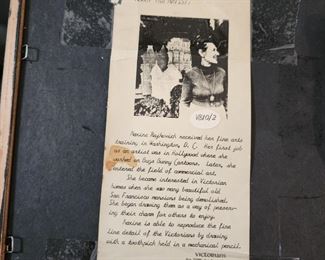 1810/2
Maxine Hayhovich received her fine arts
training in Washington, D. C. Her first job
as an artist was in Hollywood where she
worked on Bugs Bunny Cartoons. Later, she
entered the field of commercial art.
She became interested in Victorian
homes when she saw many beautiful old
San Francisco mansions being demolished.
She began drawing them as a way of preserv-
ing their charm for others to enjoy.
Maxine is able to reproduce the fine
line detail of the Victorians by drawing
with a toothpick held in a mechanical pencil.
VICTORIANS